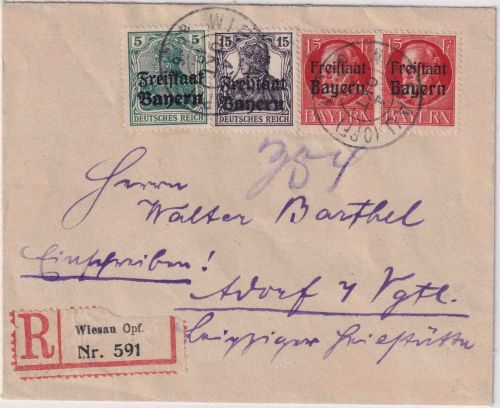 5 5
Freistaat
Bayern
DEUTSCHES REICH
15 15
Freistaat
Bayern
DEUTSCHES REICH
15
Freistaat
Bayern
BAYERN
15 P
Freistaat
Bayern
BAYERN
Herrn
Walter Barthel
Einschreiben!
Adorf i/ Vgtl.
Leipziger
R
Wiesau Opf.
Nr. 591